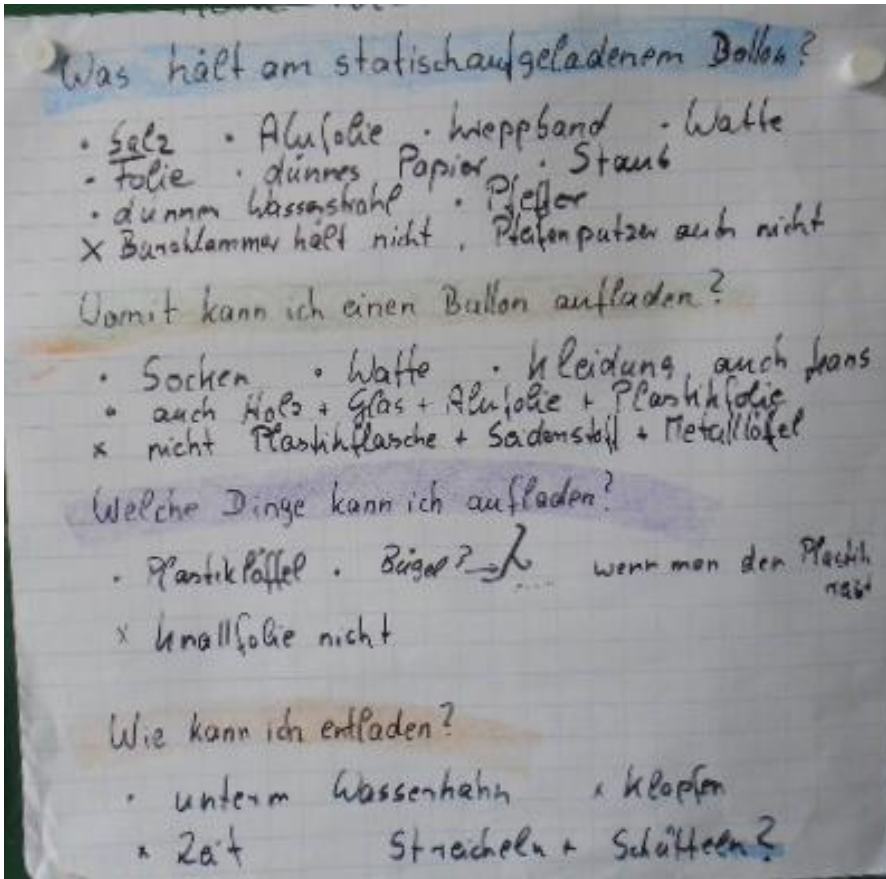 Was hält am statischaufgeladenem Ballon?
· Salz · Alufolie · Kreppband · Watte
· Folie · dünnes Papier · Staub
· dünner Wasserstrahl · Pfeffer
x Büroklammer hält nicht, Pfeifenputzer auch nicht
Womit kann ich einen Ballon aufladen?
· Socken · Watte · Kleidung, auch
· auch Holz + Glas + Alufolie + Plastikfolie
x nicht Plastikflasche + Seidenstoff + Metallöfel
Welche Dinge kann ich aufladen?
· Plastiklöffel · Bügel? → wenn man den Plastik
x Knallfolie nicht
Wie kann ich entladen?
· unterm Wasserhahn x Klopfen
x Zeit Streicheln + Schütteln?